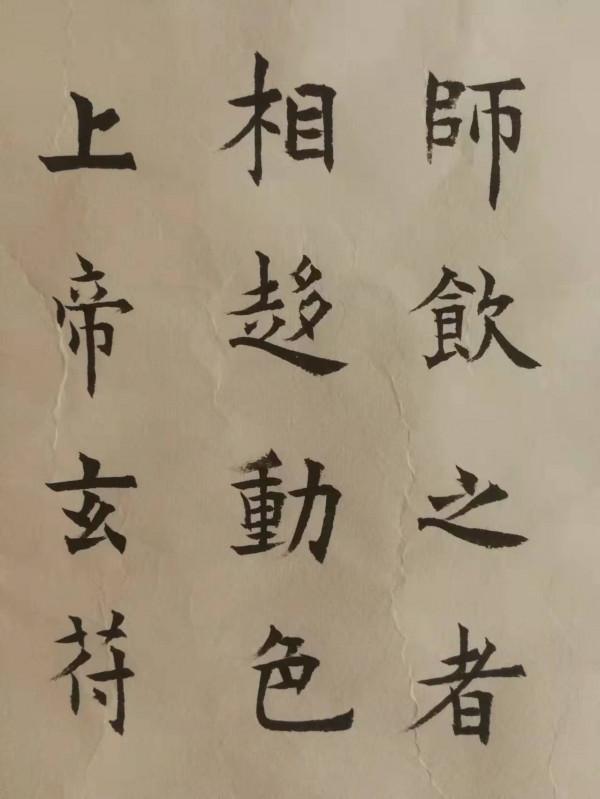 師飲之者
相趍動色
上帝玄苻